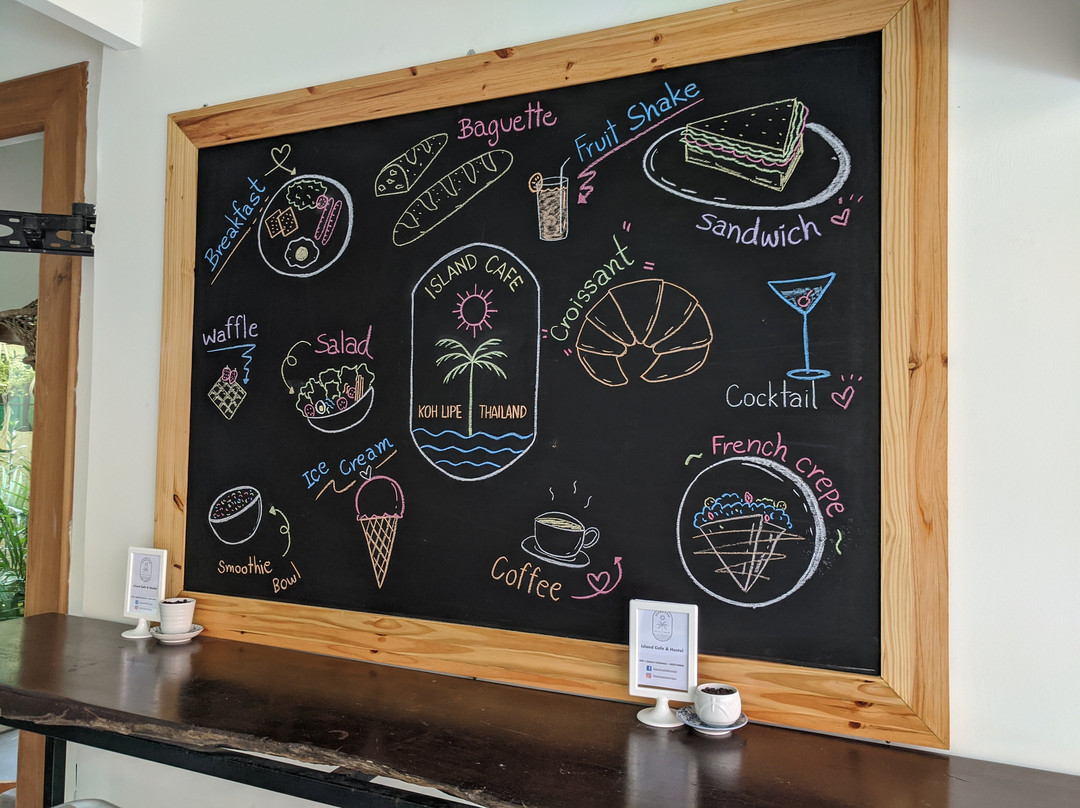 Baguette
Fruit Shake
Breakfast
Sandwich
ISLAND CAFE
Croissant
Waffle
Salad
KOH LIPE THAILAND
Cocktail
Ice Cream
French crepe
Smoothie
Bowl
Coffee
Island Cafe & Hostel
Island Cafe & Hostel